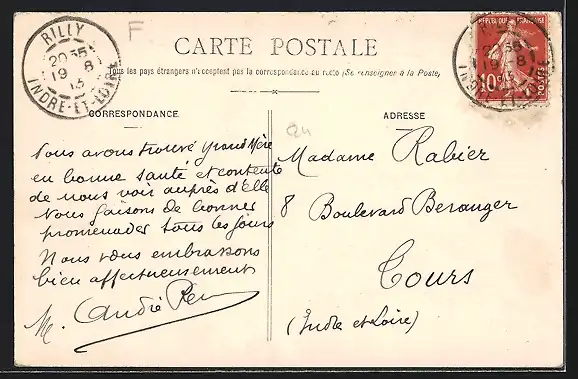 RILLY
20 35
19 8
13
INDRE-ET-LOIRE
F
CARTE POSTALE
Tous les pays étrangers n'acceptent pas la correspondance au recto (Se renseigner à la Poste)
REPUBLIQUE FRANÇAISE
10c
POSTES
CORRESPONDANCE
Nous avons trouvé grand Mère
en bonne santé et contente
de nous voir auprès d'Elle
Nous faisons de bonnes
promenades tous les jours
Nous vous embrassons
bien affectueusement
M. André
ADRESSE
Madame Rabier
8 Boulevard Beranger
Tours
(Indre et Loire)